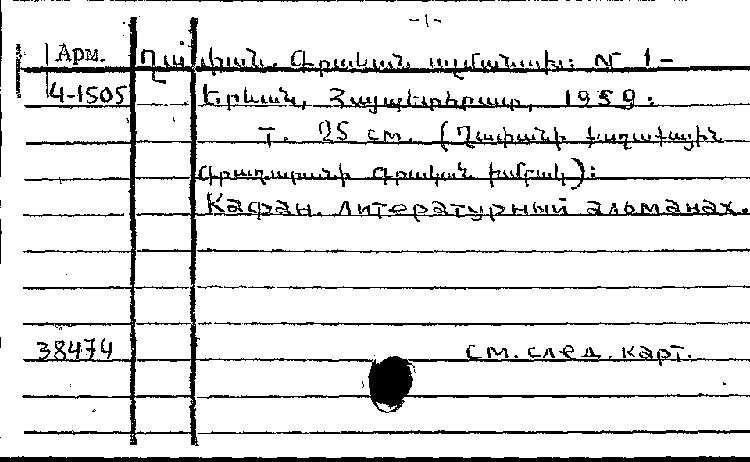 -1-
Арм. Ղափան. Գրական ալմանախ: № 1-
4-1505 Երևան, Հայպետհրատ, 1959:
т. 25 см. (Ղափանի քաղաքային
գրադարանի գրական խմբակ):
Кафан. Литературный альманах.
38474 см. след. карт.